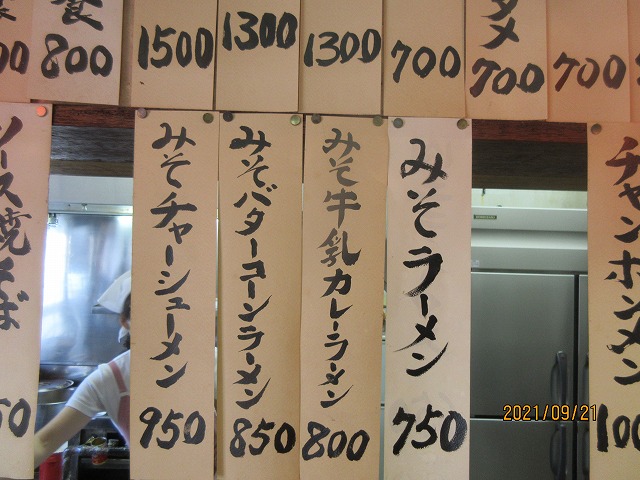 800
1500
1300
1300
700
タメ
700
700
ソース焼そば
みそチャーシューメン
950
みそバターコーンラーメン
850
みそ牛乳カレーラーメン
800
みそラーメン
750
チャンポンメン
2021/09/21